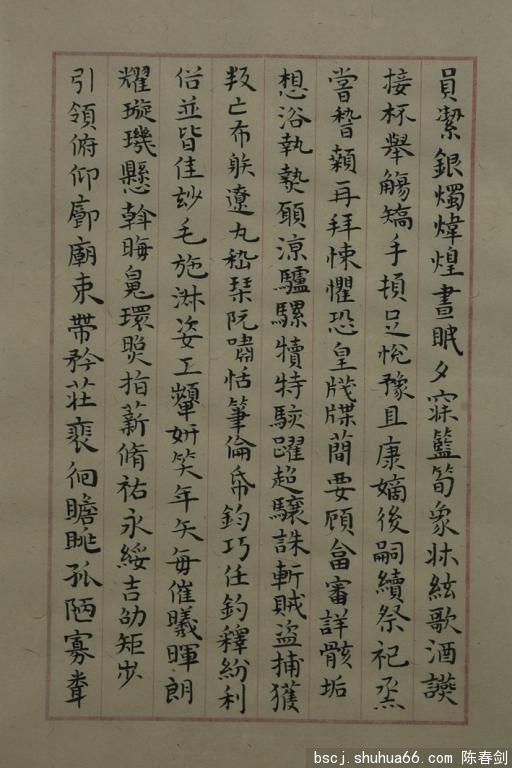 員潔銀燭煒煌晝眠夕寐籃筍象牀絃歌酒讌
接杯舉觴矯手頓足悅豫且康嫡後嗣續祭祀烝
嘗稽顙再拜悚懼恐惶牋牒簡要顧畣審詳骸垢
想浴執熱願涼驢騾犢特駭躍超驤誅斬賊盜捕獲
叛亡布躲遼丸嵇琹阮嘯恬筆倫帋鈞巧任釣釋紛利
俗並皆佳玅毛施淋姿工顰妍笑年矢每催曦暉朗
耀璇璣懸斡晦皃環照指薪脩祐永綏吉劭矩步
引領俯仰廊廟束帶矜莊裵徊瞻眺孤陋寡聋
bscj.shuhua66.com 陈春剑